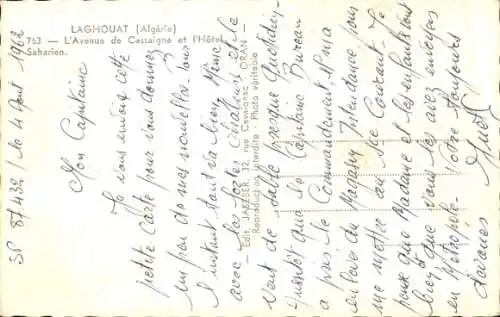 LAGHOUAT (Algérie)
763 — L'Avenue de Cassaigne et l'Hôtel
Saharien.
Edit. JAEGER, 32, rue Cavaignac ORAN
Reproduction Interdite - Photo véritable
SP 87.432 / le 4 Aout 1962
Mon Capitaine
Je vous envoie cette
petite carte pour vous donner
un peu de mes nouvelles. Pour
l'instant tout va bien, même
avec les fortes chaleurs et le
vent de sable presque quotidien.
Bientôt que le Capitaine Bureau
a pris le Commandement il m'a
enlevé du Magasin Intendance pour
me mettre au Courant. Je
pense que Madame et les enfants vont
bien et que vous les avez envoyés
en Métropole. Votre toujours
dévoué